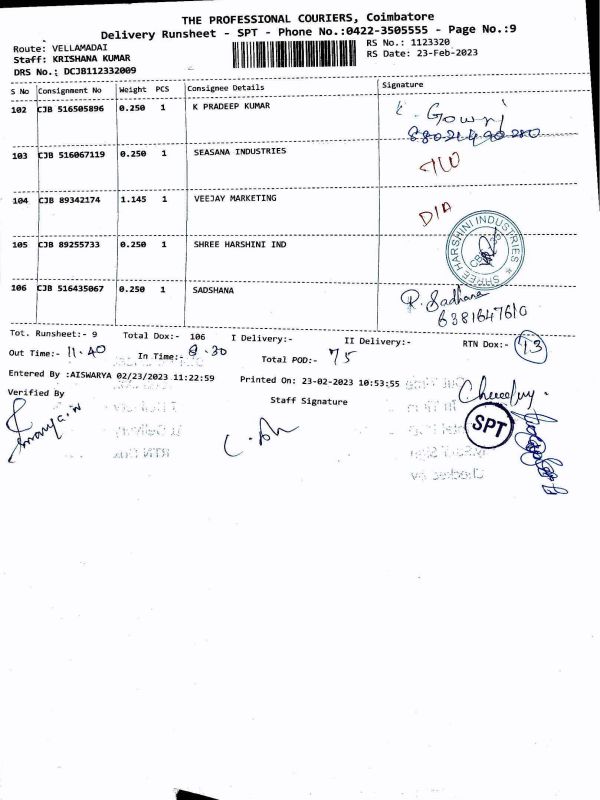 THE PROFESSIONAL COURIERS, Coimbatore
Delivery Runsheet - SPT - Phone No.:0422-3505555 - Page No.:9
Route: VELLAMADAI
RS No.: 1123320
Staff: KRISHANA KUMAR
RS Date: 23-Feb-2023
DRS No.: DCJB112332009
S No Consignment No Weight PCS Consignee Details Signature
102 CJB 516505896 0.250 1 K PRADEEP KUMAR K. Gowri
103 CJB 516067119 0.250 1 SEASANA INDUSTRIES
104 CJB 89342174 1.145 1 VEEJAY MARKETING D/A
105 CJB 89255733 0.250 1 SHREE HARSHINI IND
SHREE HARSHINI INDUSTRIES
106 CJB 516435067 0.250 1 SADSHANA R. Sadhana
6381647610
Tot. Runsheet:- 9 Total Dox:- 106 I Delivery:- II Delivery:- RTN Dox:- 13
Out Time:- 11.40 In Time:- 8.30 Total POD:- 75
Entered By :AISWARYA 02/23/2023 11:22:59 Printed On: 23-02-2023 10:53:55
Verified By Staff Signature
SPT